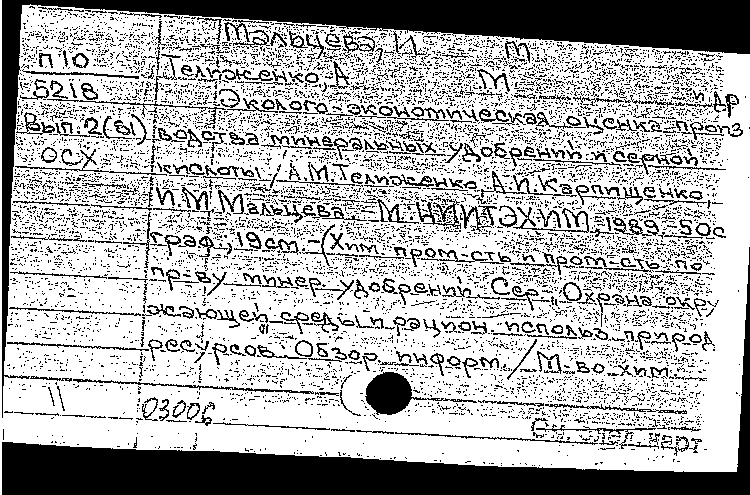 Мальцева, И М
П10
Телиженко, А М и др
5218
Эколого-экономическая оценка произ
Вып. 2(81) водства минеральных удобрений и серной
ОСХ кислоты / А.М. Телиженко, А.И. Карпищенко,
И.М Мальцева. - М.: НИИТЭХИМ, 1989. - 50 с
граф., 19 см. - (Хим. пром-сть и пром-сть по
пр-ву минер удобрений. Сер. „Охрана окру
жающей среды и рацион. использ. природ
ресурсов": Обзор. информ. / М-во хим.
11 03006
См. след. карт